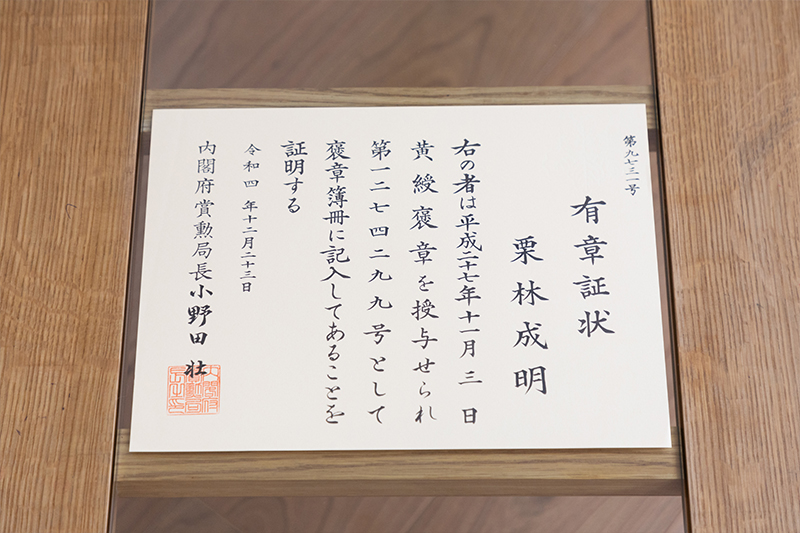 第九七三一号
有章証状
栗林成明
右の者は平成二十七年十一月三日
黄綬褒章を授与せられ
第一二七四二九九号として
褒章簿冊に記入してあることを
証明する
令和四年十二月二十三日
内閣府賞勲局長小野田壮